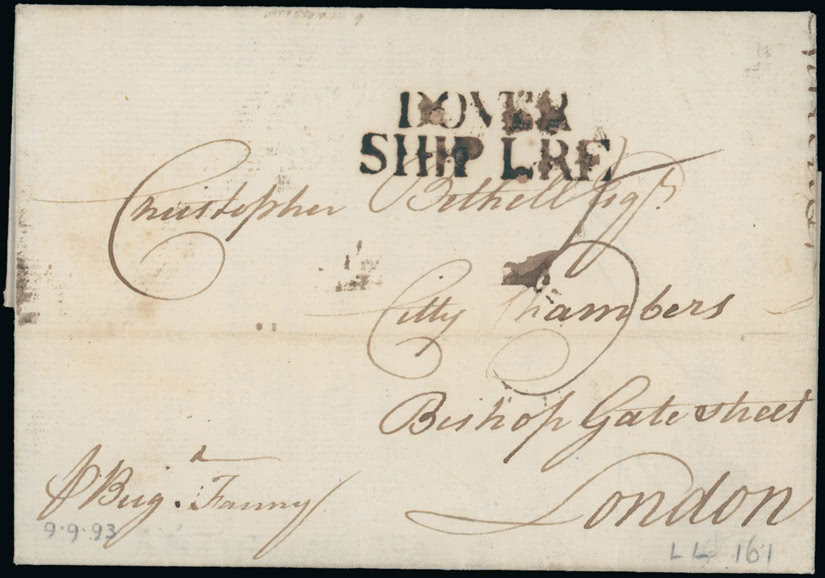 DOVER
SHIP LRE
Christopher Bethell Esqr.
5
Citty Chambers
Bishop Gate street
London
p Brig.a Fanny
9·9·93
LL 161